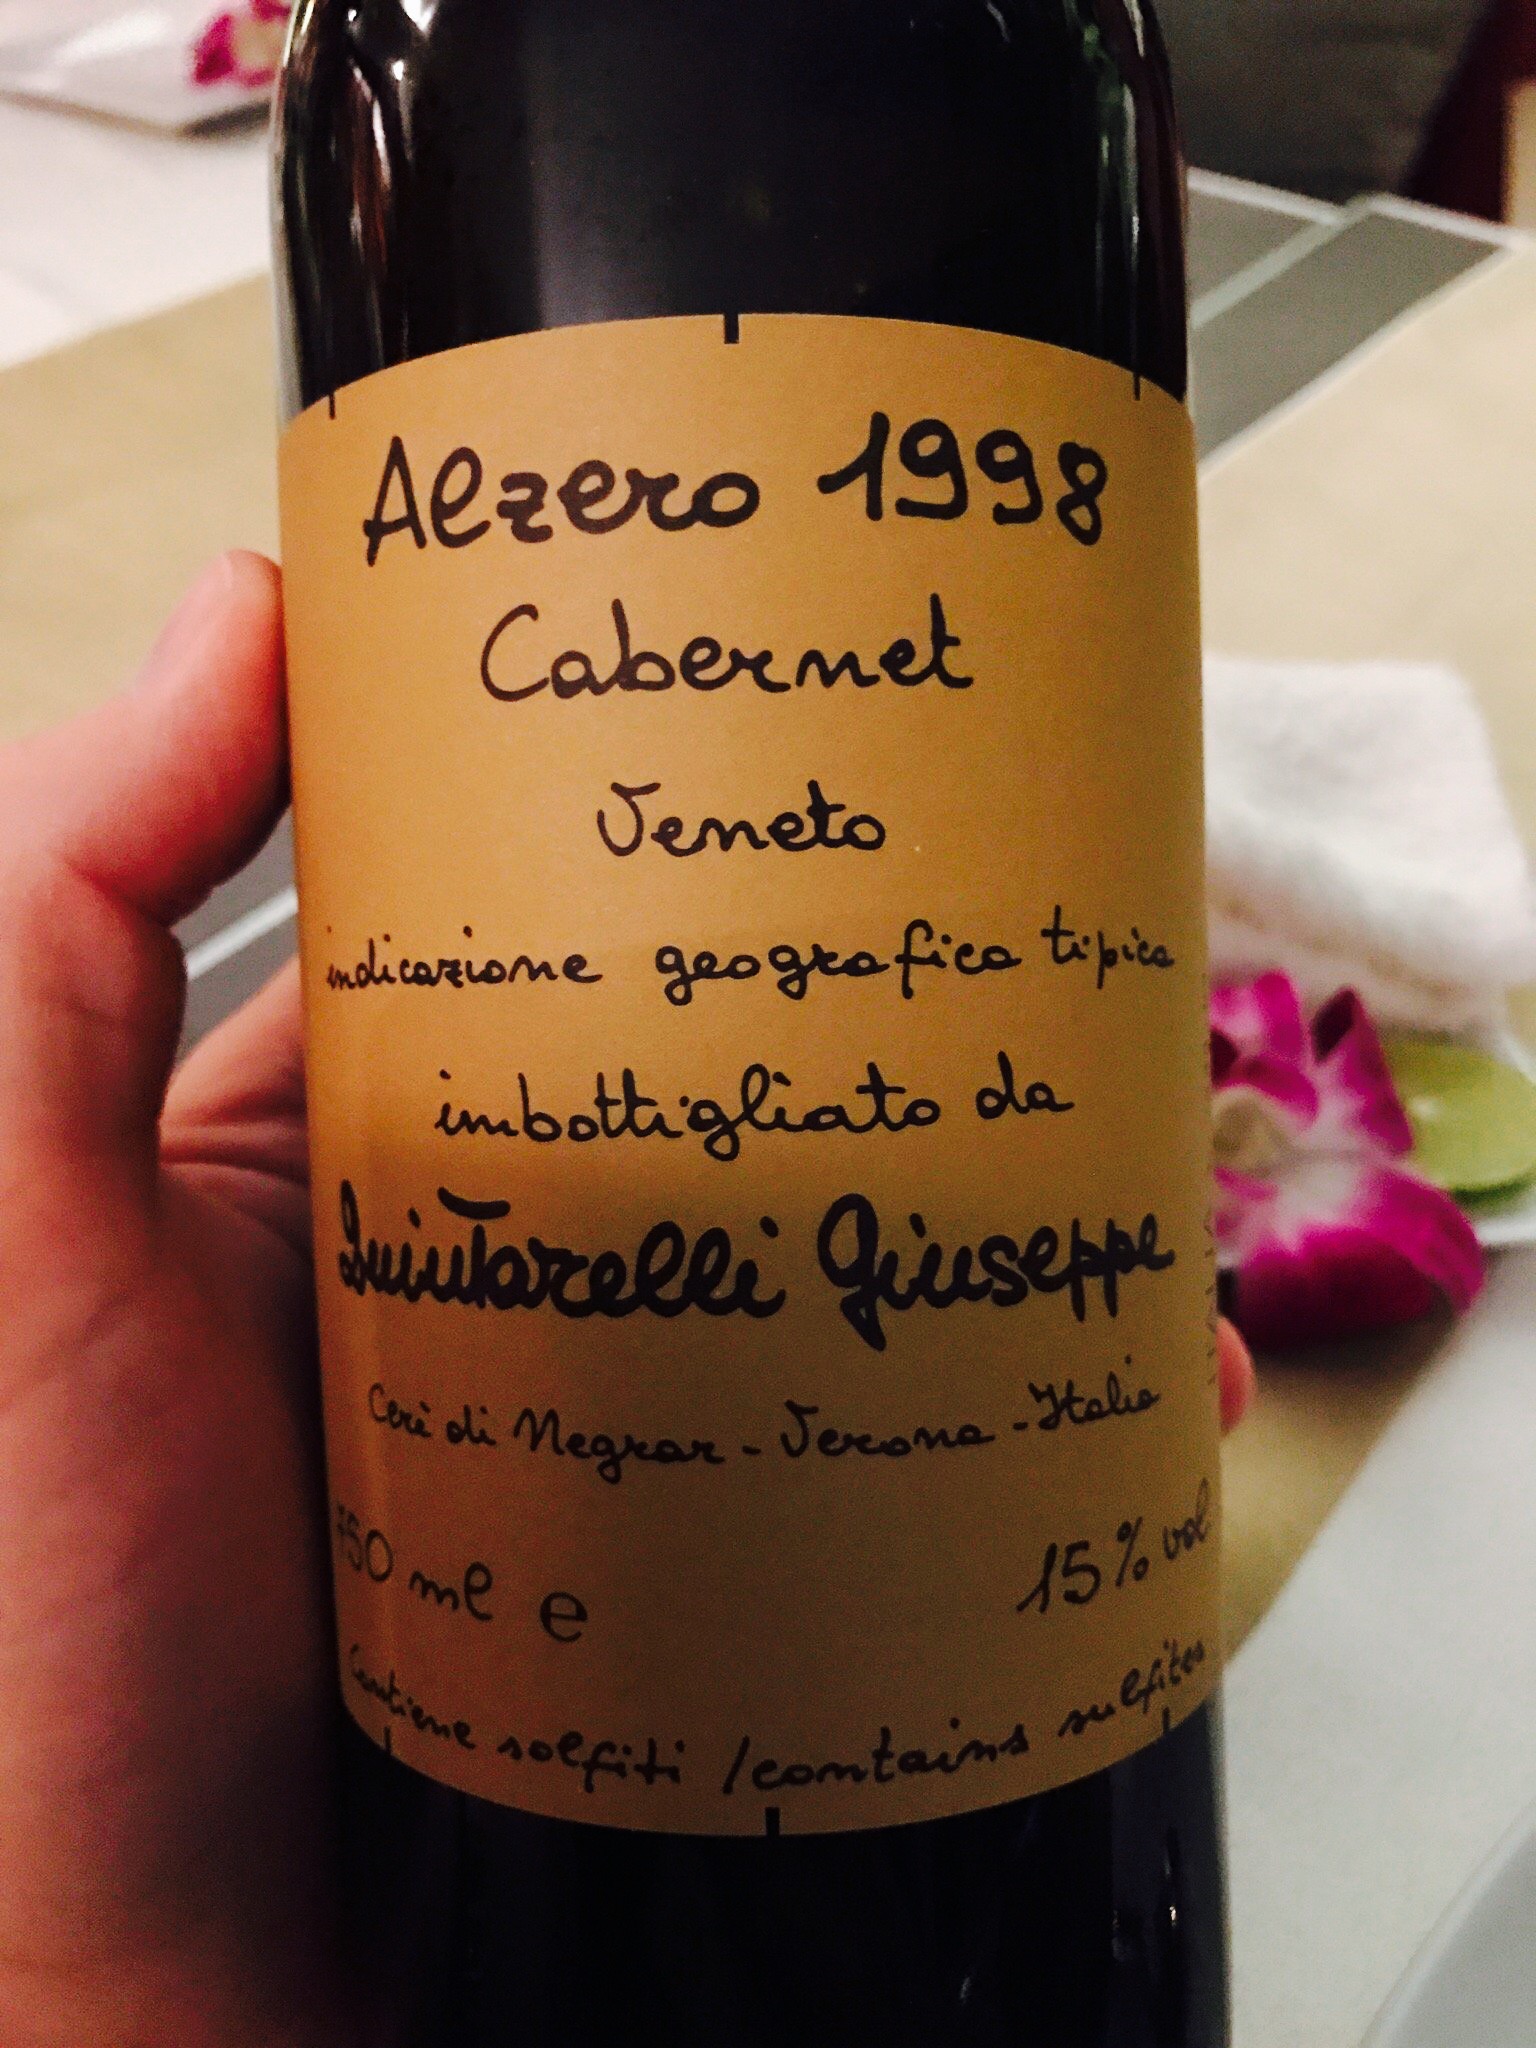 Alzero 1998
Cabernet
Veneto
indicazione geografica tipica
imbottigliato da
Quintarelli Giuseppe
Cerè di Negrar - Verona - Italia
750 ml e 15% vol
Contiene solfiti / contains sulfites